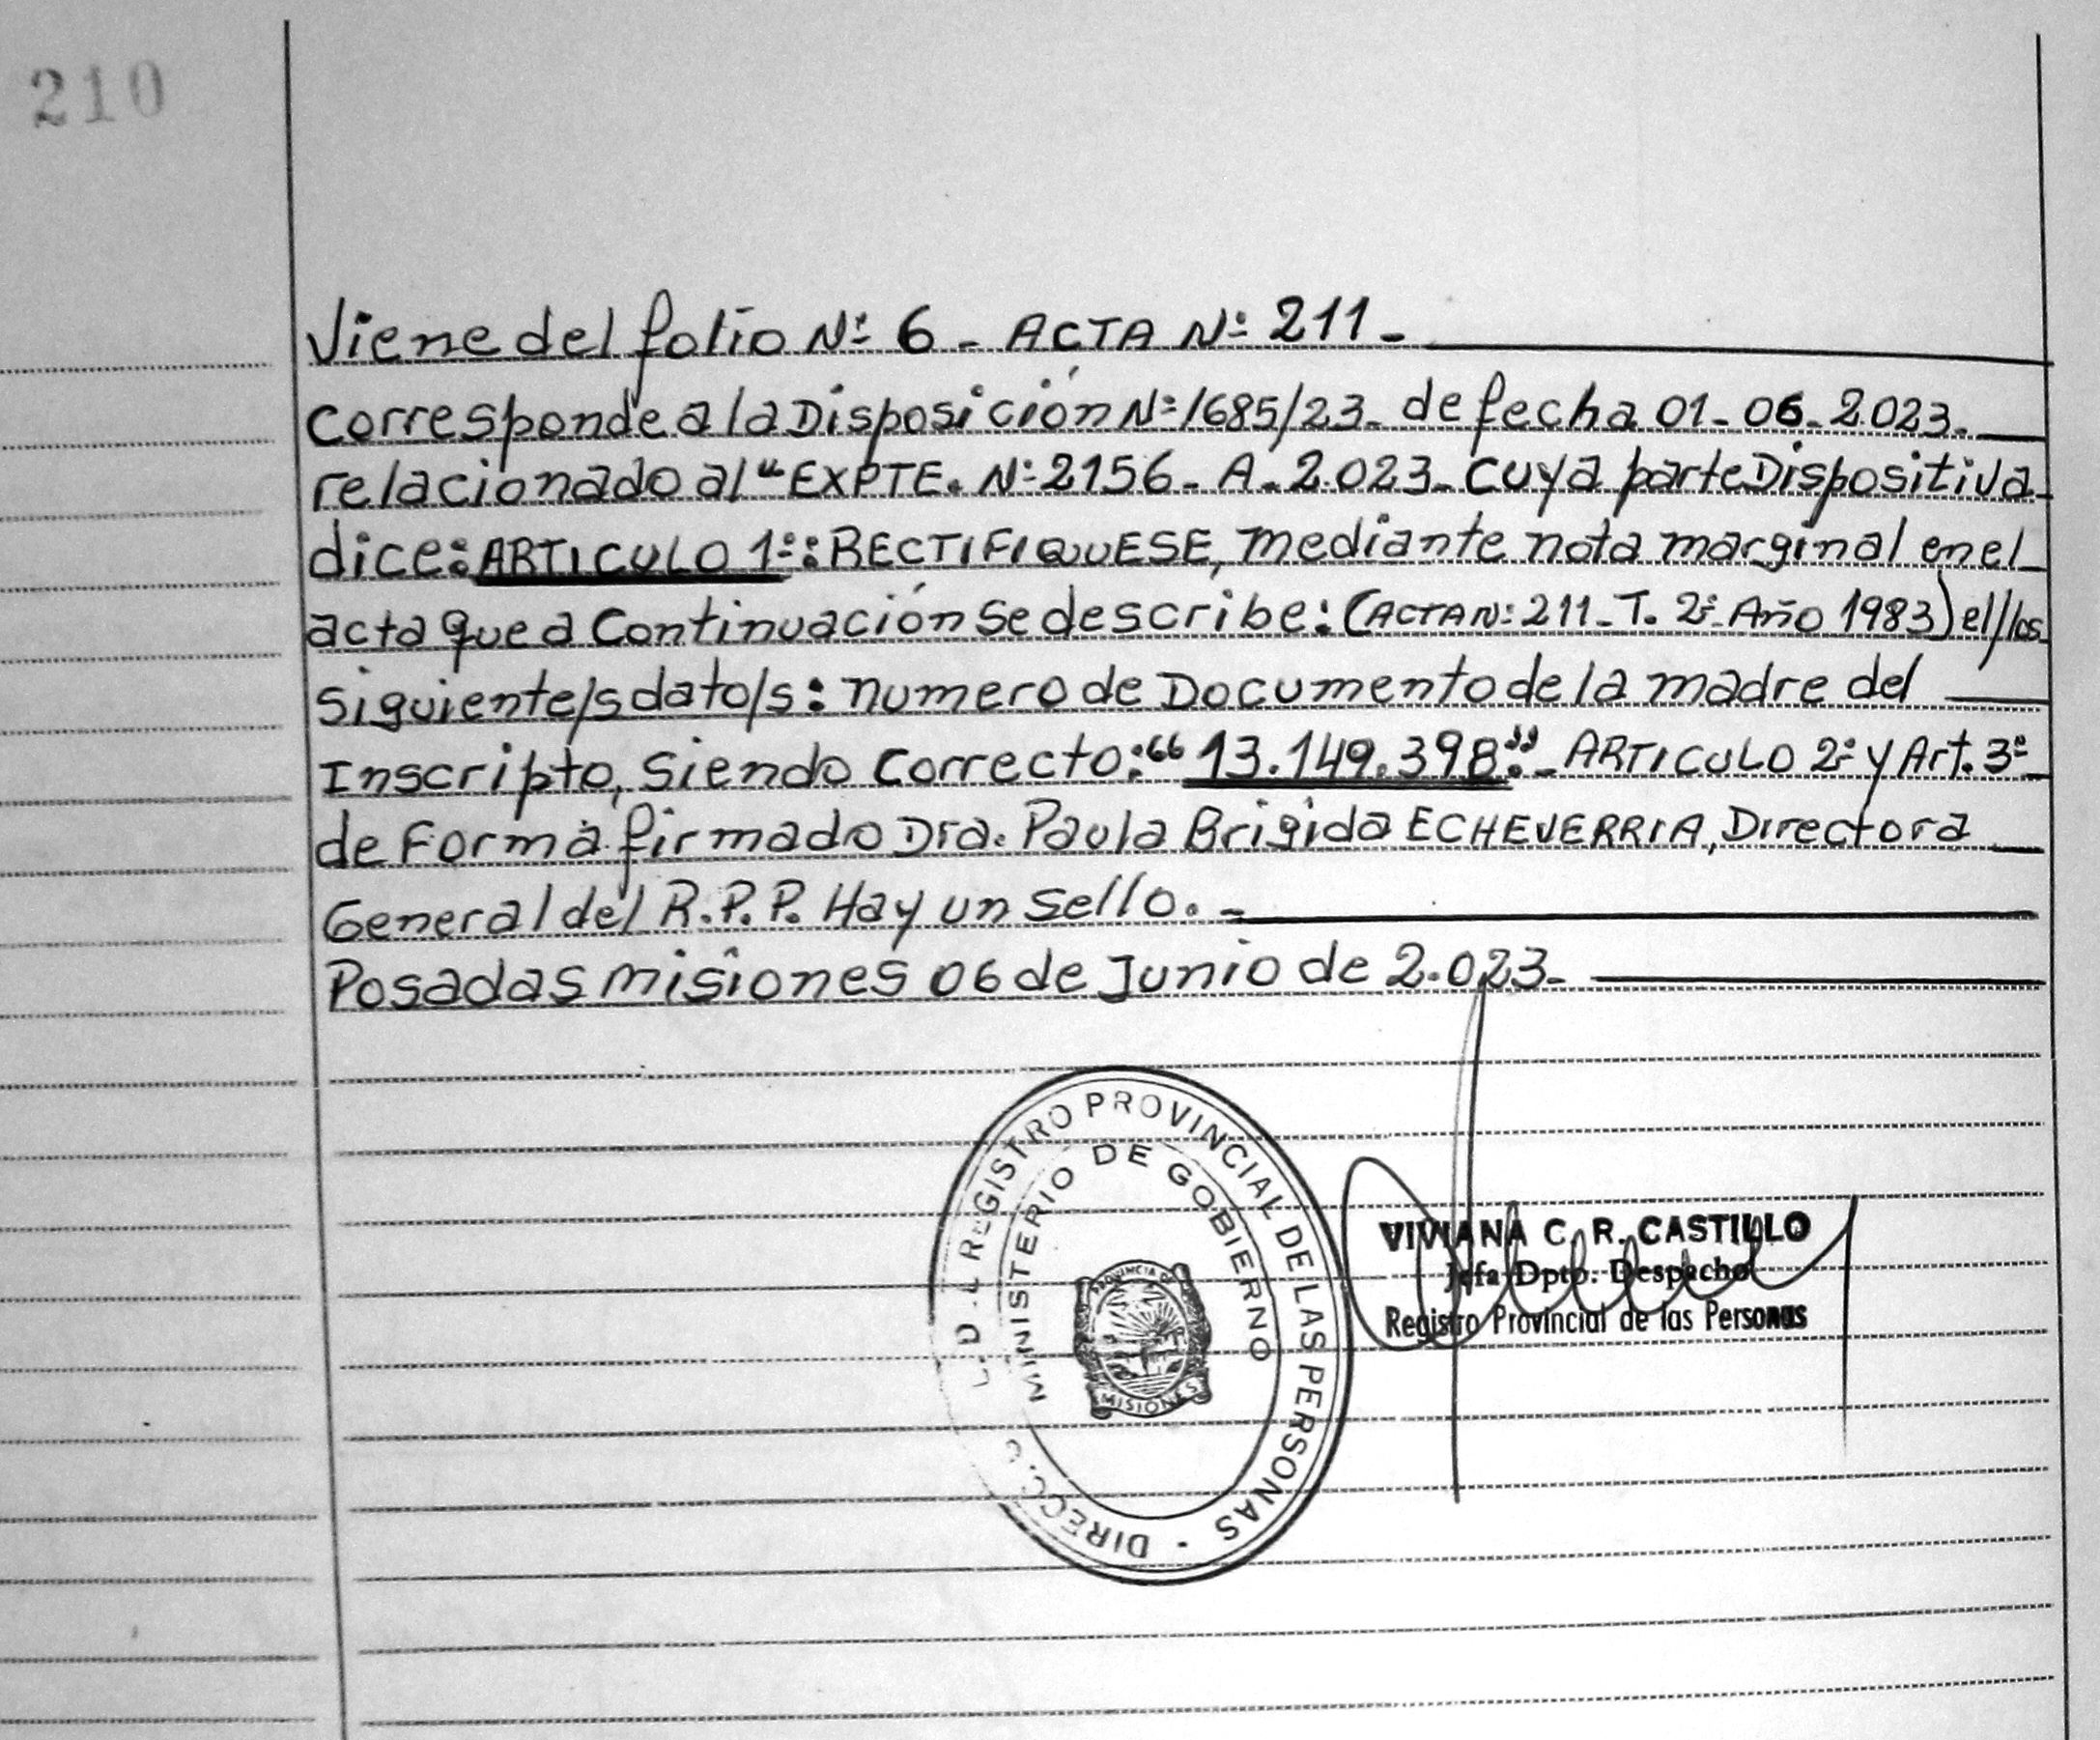 210
Viene del folio Nº 6 - ACTA Nº 211 -
Corresponde a la Disposición Nº 1685/23- de fecha 01-06-2023.
relacionado al "EXPTE. Nº 2156- A- 2.023- Cuya parte Dispositiva
dice: ARTICULO 1º: RECTIFIQUESE, mediante nota marginal en el
acta que a Continuación Se describe: (ACTA Nº 211- T. 2º- Año 1983) el/los
Siguiente/s dato/s: numero de Documento de la madre del
Inscripto, Siendo Correcto: "13.149.398".- ARTICULO 2º y Art. 3º
de Forma firmado Dra. Paula Brigida ECHEVERRIA, Directora
General del R.P.P. Hay un Sello. -
Posadas misiones 06 de Junio de 2.023-
REGISTRO PROVINCIAL DE LAS PERSONAS
MINISTERIO DE GOBIERNO
PROVINCIA DE
MISIONES
VIVIANA C. R. CASTILLO
Jefa Dpto. Despacho
Registro Provincial de las Personas